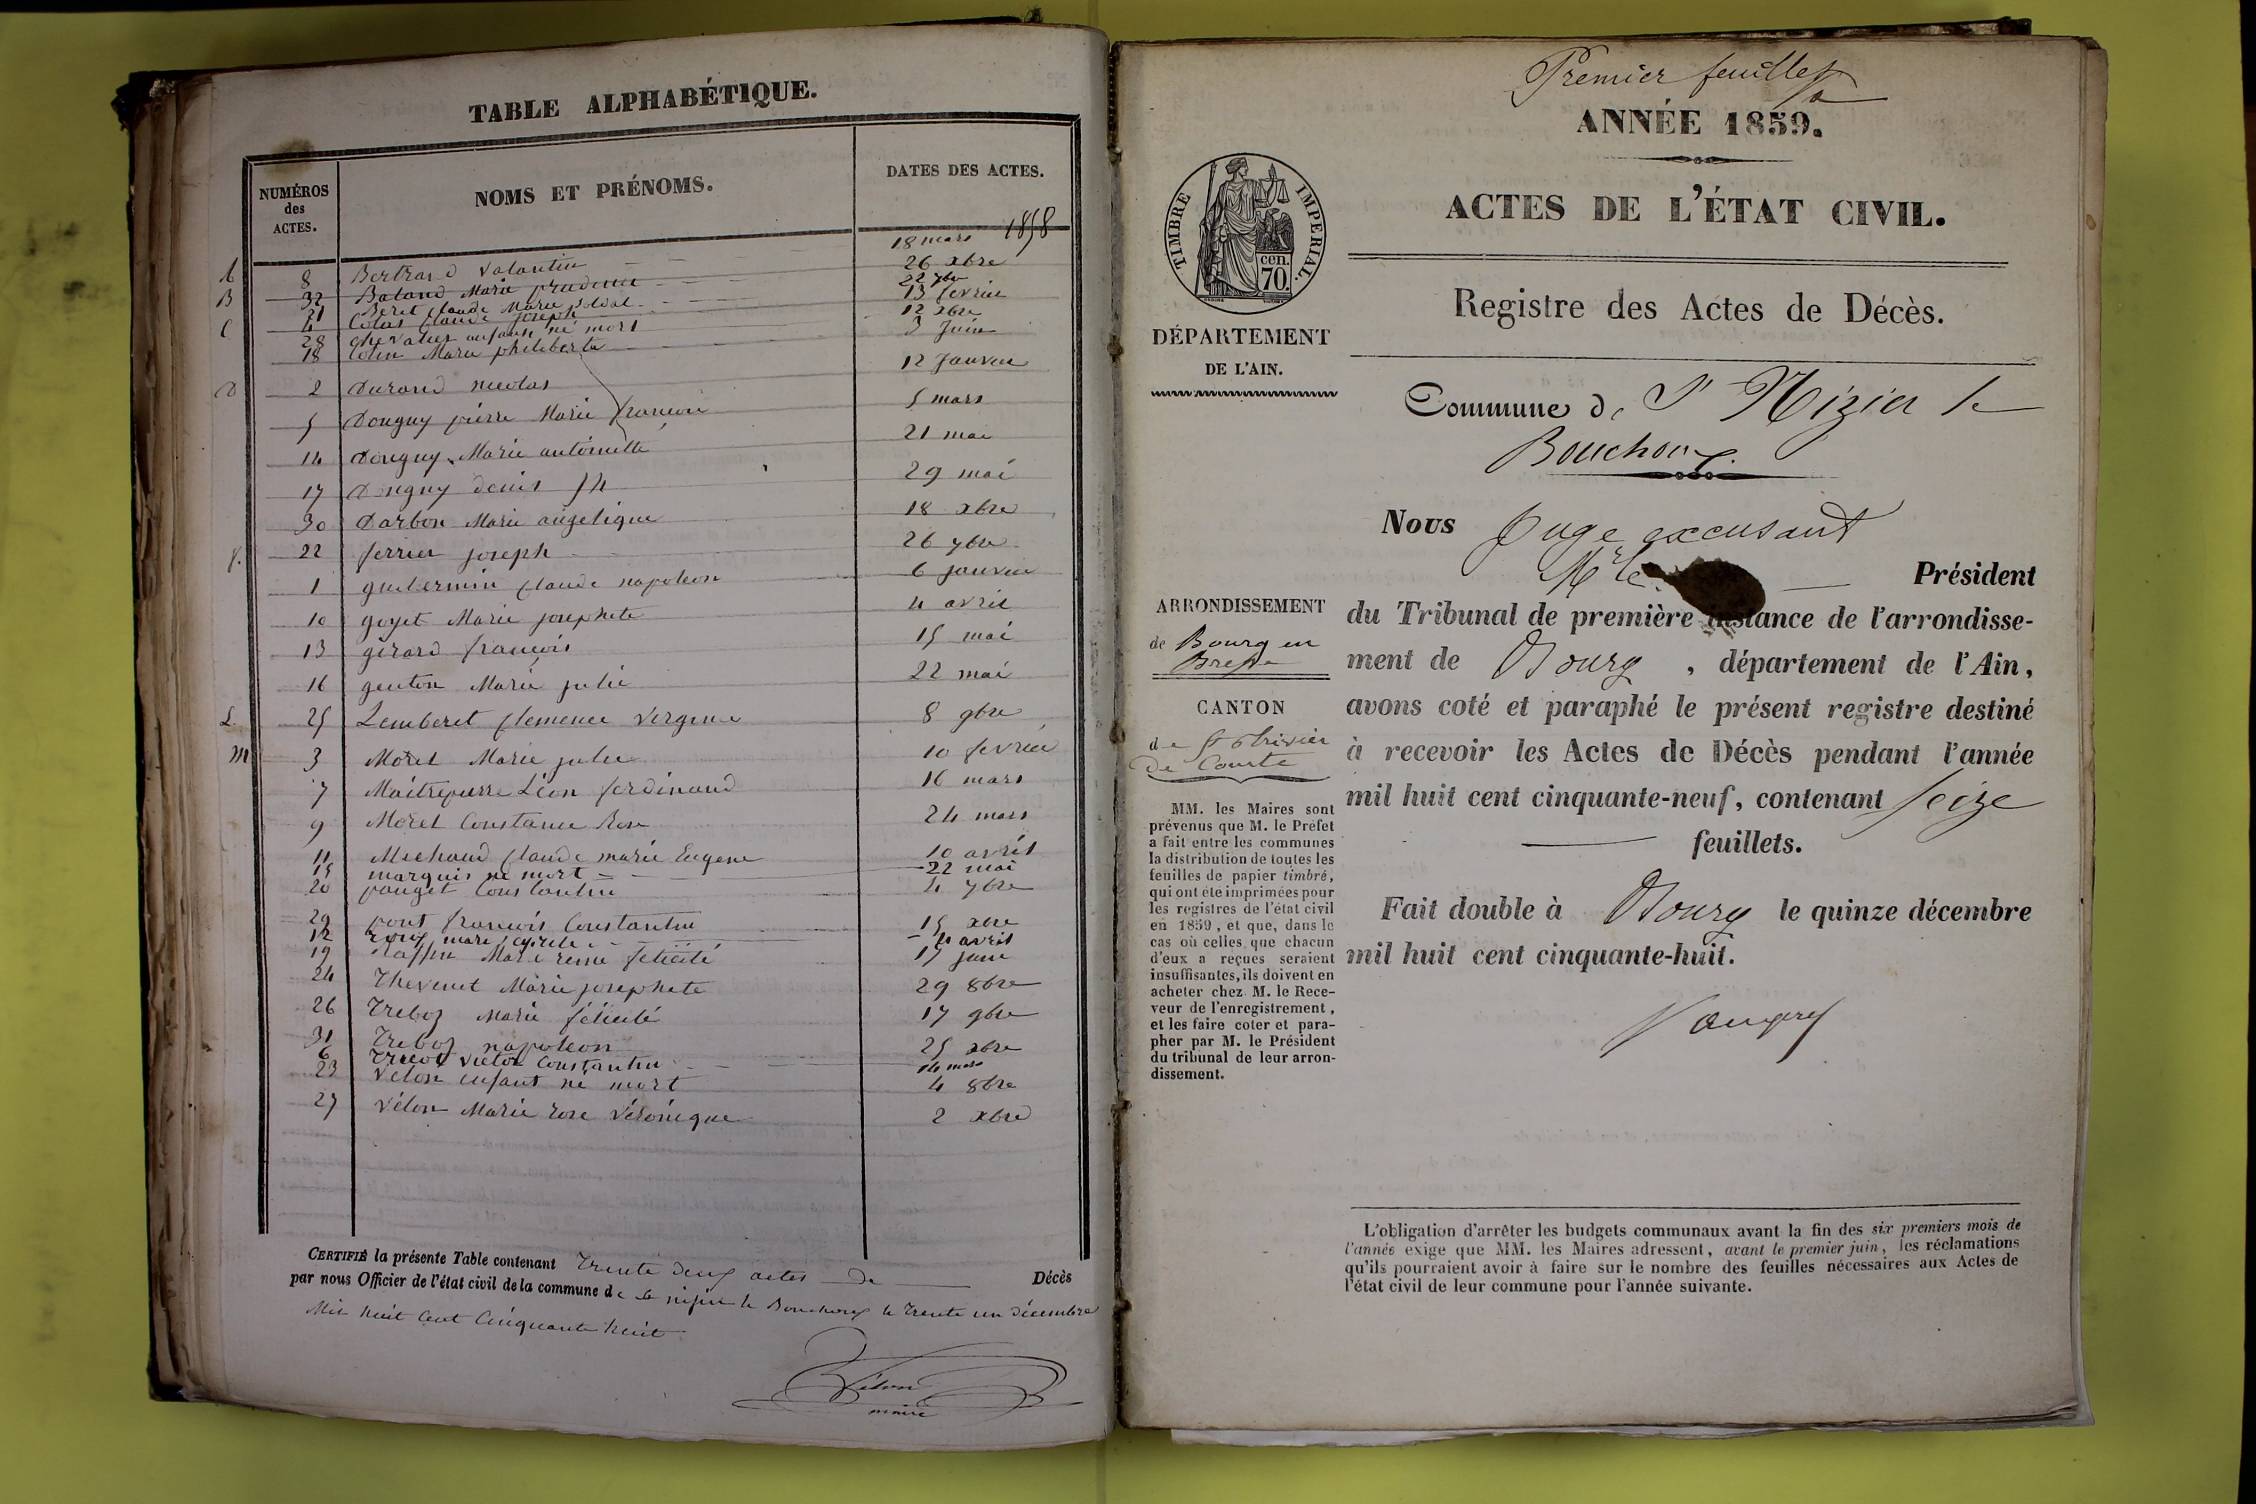 TABLE ALPHABÉTIQUE.
NUMÉROS des ACTES.
NOMS ET PRÉNOMS.
DATES DES ACTES.
1858
8 Bertrand Valantin 18 mars
B 32 Batand Marie prudence 26 xbre
21 Beret claude Marie soldat 22 7bre
C 4 Colas Claude joseph 13 fevrier
28 chevalier enfant né mort 12 xbre
18 Colin Marie philiberte 3 Juin
D 2 Durand nicolas 12 Janvier
5 Donguy pierre Marie francois 5 mars
14 Donguy Marie antoinette 21 mai
17 Donguy denis 29 mai
30 Darbon Marie angelique 18 xbre
f. 22 ferrier joseph 26 7bre
1 guillermin claude napoleon 6 janvier
10 goyet Marie josephete 4 avril
13 girard francois 15 mai
16 genton Marie julie 22 mai
L. 25 Lemberet Clemence Vergenie 8 9bre
M 3 Morel Marie julie 10 fevrier
7 Maitrepierre Léon ferdinand 16 mars
9 Morel Constance Rose 24 mars
11 Michaud Claude marie Eugene 10 avril
15 marquis né mort 22 mai
20 pauget Constantin 4 7bre
29 pont francois Constantin 15 xbre
12 4 avril
19 Raffin Marie reine felicité 15 juin
24 Thevenet Marie josephete 29 8bre
26 Treboz Marie félicité 17 9bre
31 Treboz napoleon 25 xbre
6 Victor Constantin 14 mars
23 Vélon enfant né mort 4 8bre
27 Vélon Marie rose Véronique 2 xbre
CERTIFIÉ la présente Table contenant trente deux actes de Décès
par nous Officier de l'état civil de la commune de St nizier le Bouchoux le trente un décembre
Mil huit cent cinquante huit
Vélon
maire
Premier feuillet
ANNÉE 1859.
ACTES DE L'ÉTAT CIVIL.
TIMBRE IMPERIAL.
cen. 70.
Registre des Actes de Décès.
DÉPARTEMENT
DE L'AIN.
Commune de St Nizier le
Bouchoux.
Nous Juge excusant
Mr le Président
du Tribunal de première instance de l'arrondisse-
ment de Bourg, département de l'Ain,
avons coté et paraphé le présent registre destiné
à recevoir les Actes de Décès pendant l'année
mil huit cent cinquante-neuf, contenant seize
feuillets.
Fait double à Bourg le quinze décembre
mil huit cent cinquante-huit.
ARRONDISSEMENT
de Bourg en
Bresse
CANTON
de St trivier
de Courte
MM. les Maires sont
prévenus que M. le Préfet
a fait entre les communes
la distribution de toutes les
feuilles de papier timbré,
qui ont été imprimées pour
les registres de l'état civil
en 1859, et que, dans le
cas où celles que chacun
d'eux a reçues seraient
insuffisantes, ils doivent en
acheter chez M. le Rece-
veur de l'enregistrement,
et les faire coter et para-
pher par M. le Président
du tribunal de leur arron-
dissement.
L'obligation d'arrêter les budgets communaux avant la fin des six premiers mois de
l'année exige que MM. les Maires adressent, avant le premier juin, les réclamations
qu'ils pourraient avoir à faire sur le nombre des feuilles nécessaires aux Actes de
l'état civil de leur commune pour l'année suivante.